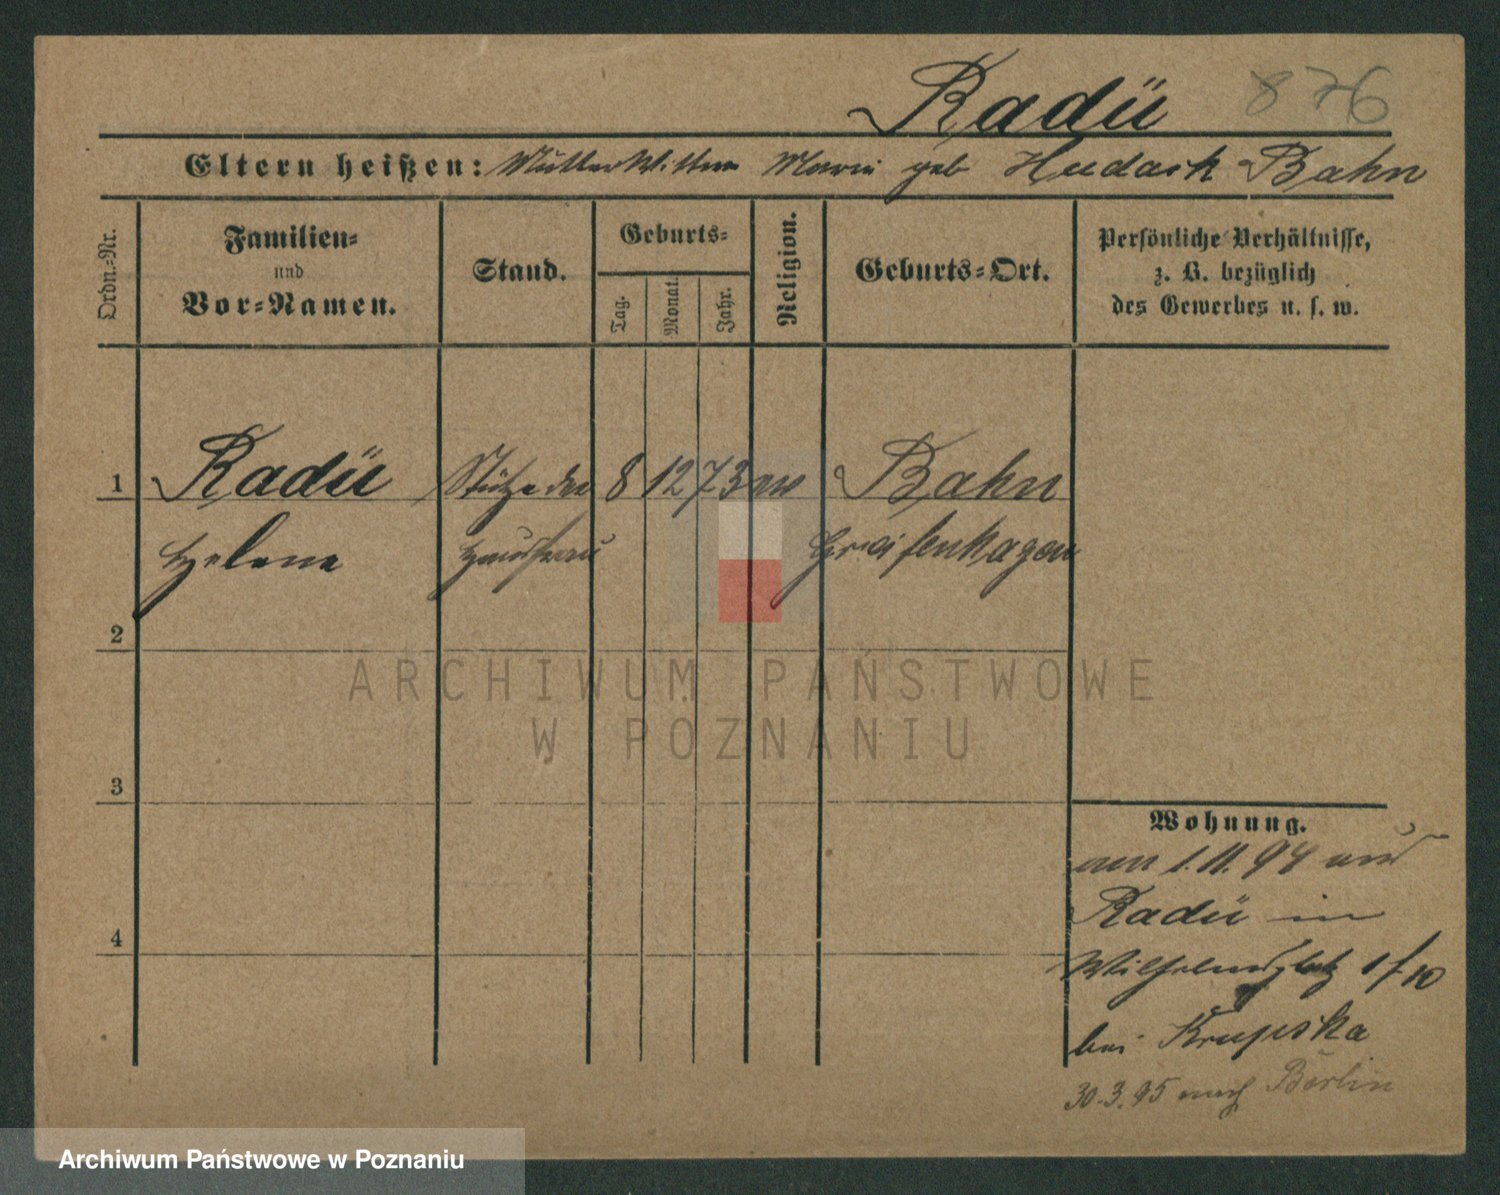 Radü 876
Eltern heißen: Mutter Wittwe Marie geb Bahn
Ordn.-Nr.
Familien-
und
Vor-Namen.
Stand.
Geburts-
Tag.
Monat.
Jahr.
Religion.
Geburts-Ort.
Persönliche Verhältnisse,
z. B. bezüglich
des Gewerbes u. s. w.
1 Radü Stütze der 8 12 73 ev Bahn
Helene Hausfrau Greifenhagen
2
ARCHIWUM PAŃSTWOWE
W POZNANIU
3
Wohnung.
am 1.11.94 aus
Radü in
4
Wilhelmsplatz 1/10
bei Krupska
30.3.95 nach Berlin
Archiwum Państwowe w Poznaniu